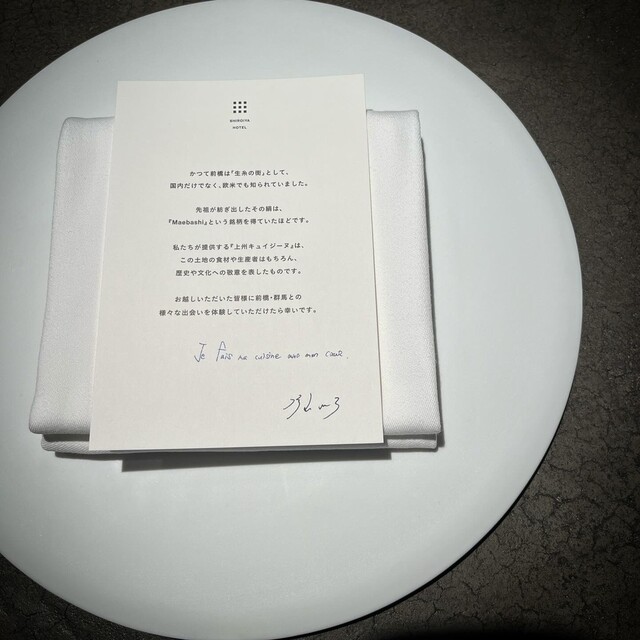 SHIROIYA
HOTEL
かつて前橋は『生糸の街』として、
国内だけでなく、欧米でも知られていました。
先祖が紡ぎ出したその絹は、
『Maebashi』という銘柄を得ていたほどです。
私たちが提供する『上州キュイジーヌ』は、
この土地の食材や生産者はもちろん、
歴史や文化への敬意を表したものです。
お越しいただいた皆様に前橋・群馬との
様々な出会いを体験していただけたら幸いです。
Je fais cuisine mon